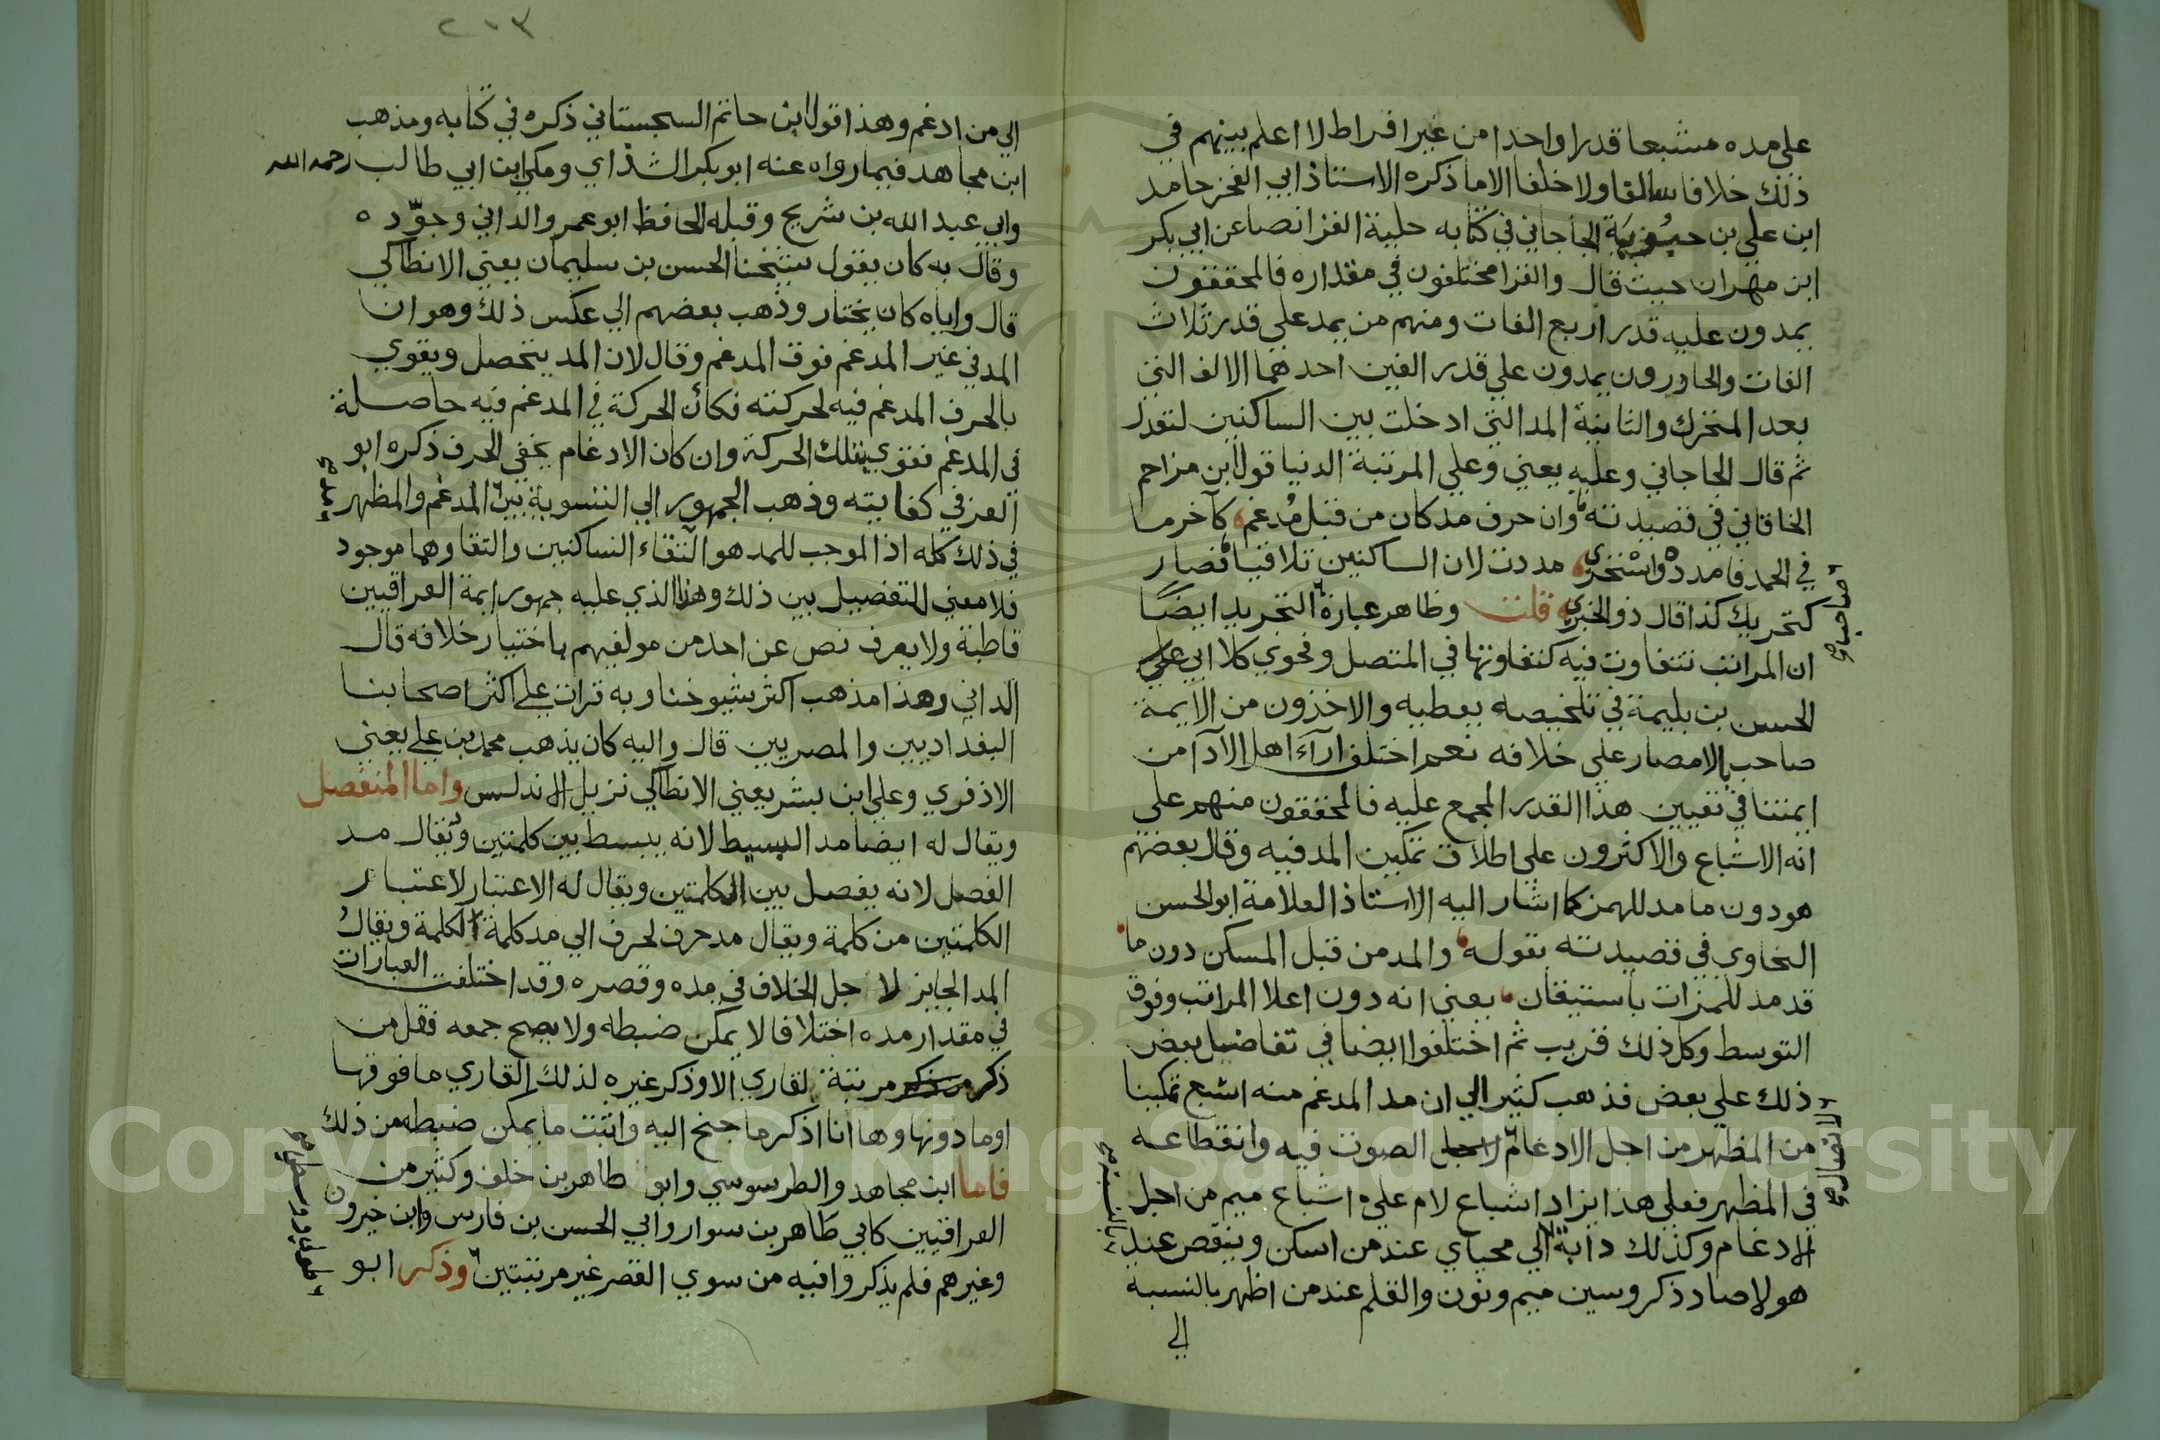 علي مده مشبعا قدرا واحدا من غير افراط لا اعلم بينهم في
ذلك خلافا سالفا ولا خلفا الا ما ذكره الاستاذ ابي الفخر حامد
ابن علي بن حسنويه الجاجاني في كتابه حلية القرا نصا عن ابي بكر
ابن مهران حيث قال والقرا مختلفون في مقداره فالمحققون
يمدون عليه قدر اربع الفات ومنهم من يمد علي قدر ثلاث
الفات والحادرون يمدون علي قدر الفين احدهما الالف التي
بعد المتحرك والثانية المد التي ادخلت بين الساكنين لتعدل
ثم قال الجاجاني وعليه يعني وعلي المرتبة الدنيا قول ابن مزاحم
الخاقاني في قصيدته وان حرف مد كان من قبل مدغم كآخر ما
في الحمد فامدده واستجري مددت لان الساكنين تلاقيا فصار
كتحريك كذا قال ذو الخبر قلت وظاهر عبارة التجريد ايضا
ان المراتب تتفاوت فيه كتفاوتها في المتصل وفحوي كلا ابي علي
الحسن بن بليمة في تلخيصه يعطيه والاخذون من الايمة
صاحب بالامصار علي خلافه نعم اختلف آراء اهل الآدا من
ايمتنا في تعيين هذا القدر المجمع عليه فالمحققون منهم علي
انه الاشباع والاكثرون علي اطلاق تمكين المد فيه وقال بعضهم
هو دون ما مد للهمز كما اشار اليه الاستاذ العلامة ابو الحسن
السخاوي في قصيدته بقوله والمد من قبل المسكن دون ما
قد مد للهمزات باستيقان يعني انه دون اعلا المراتب وفوق
التوسط وكل ذلك قريب ثم اختلفوا ايضا في تفاضل بعض
ذلك علي بعض فذهب كثير الي ان مد المدغم منه اشبع تمكينا
من المظهر من اجل الادغام الصوت فيه وانقطاعه
في المظهر فعلي هذا يزاد اشباع لام علي اشباع ميم من اجل
الادغام وكذلك دابة الي محياي عند من اسكن وينقص عند
هولا صاد ذكر وسين ميم ونون والقلم عند من اظهر بالنسبة
الي
٢٠٣
الي من ادغم وهذا قول ابن حاتم السجستاني ذكره في كتابه ومذهب
ابن مجاهد فيما رواه عنه ابو بكر الشذاي ومكي ابن ابي طالب رحمه الله
وابي عبد الله بن شريح وقبله الحافظ ابو عمرو الداني وجوده
وقال به كان يقول شيخنا الحسن بن سليمان يعني الانطاكي
قال واياه كان يختار وذهب بعضهم الي عكس ذلك وهو ان
المد في غير المدغم فوق المدغم وقال لان المد يتحصل ويقوي
بالحرف المدغم فيه لحركته فكأن الحركة في المدغم فيه حاصلة
في المدغم فقوي بتلك الحركة وان كان الادغام يخفي الحرف ذكره ابو
العز في كفايته وذهب الجمهور الي التسوية بين المدغم والمظهر
في ذلك كله اذ الموجب للمد هو التقاء الساكنين والتقاوهما موجود
فلا معني للتفضيل بين ذلك وهذا الذي عليه جمهور ايمة العراقيين
قاطبة ولا يعرف نص عن احد من مولفيهم باختيار خلافه قال
الداني وهذا مذهب اكثر شيوخنا وبه قرات علي اكثر اصحابنا
البغداديين والمصريين قال واليه كان يذهب محمد بن علي يعني
الاذفوي وعلي ابن بشر يعني الانطاكي نزيل الاندلس واما المنفصل
ويقال له ايضا مد البسيط لانه يبسط بين كلمتين ويقال مد
الفصل لانه يفصل بين الكلمتين ويقال له الاعتبار لاعتبار
الكلمتين من كلمة ويقال مد حرف لحرف الي مد كلمة الكلمة ويقال
المد الجايز لا جل الخلاف في مده وقصره وقد اختلفت العبارات
في مقدار مده اختلافا لا يمكن ضبطه ولا يصح جمعه فقل من
ذكر مرتبة لقاري الا وذكر غيره لذلك القاري ما فوقها
او ما دونها وها انا اذكر ما جنح اليه واثبت ما يمكن ضبطه من ذلك
فاما ابن مجاهد والطرسوسي وابو طاهر بن خلف وكثير من
العراقيين كابي طاهر بن سوار وابي الحسن بن فارس وابن خيرون
وغيرهم فلم يذكروا فيه من سوي القصر غير مرتبتين وذكر ابو
Copyright © King Saud University